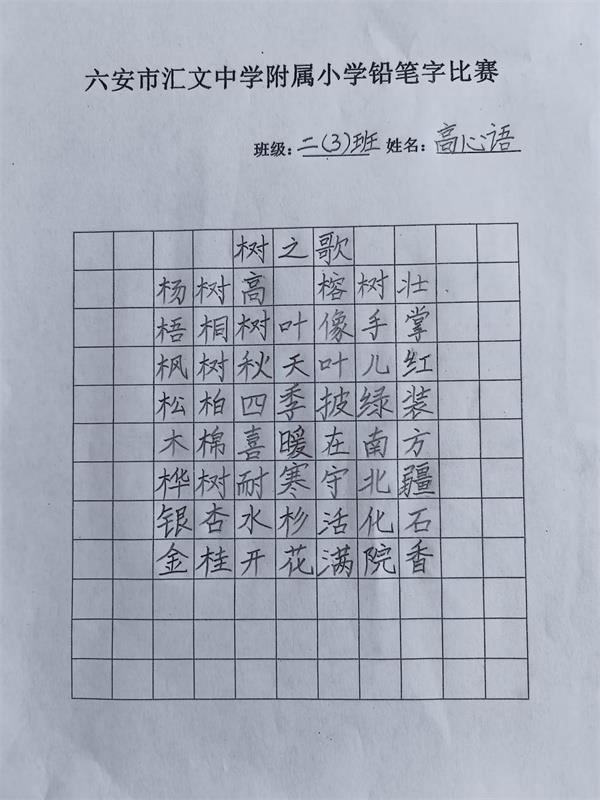 六安市汇文中学附属小学铅笔字比赛
班级:二(3)班 姓名:高心语
树之歌
杨树高 榕树壮
梧桐树叶像手掌
枫树秋天叶儿红
松柏四季披绿装
木棉喜暖在南方
桦树耐寒守北疆
银杏水杉活化石
金桂开花满院香